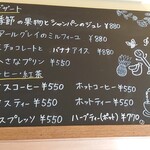 デザート
季節の果物とシャンパンのジュレ ¥880
アールグレイのミルフィーユ ¥880
チョコレートと バナナアイス ¥880
小さなプリン ¥550
コーヒー・紅茶
アイスコーヒー ¥550 ホットコーヒー ¥550
アイスティー ¥550 ホットティー ¥550
エスプレッソ ¥550 ハーブティー(ポット) ¥770